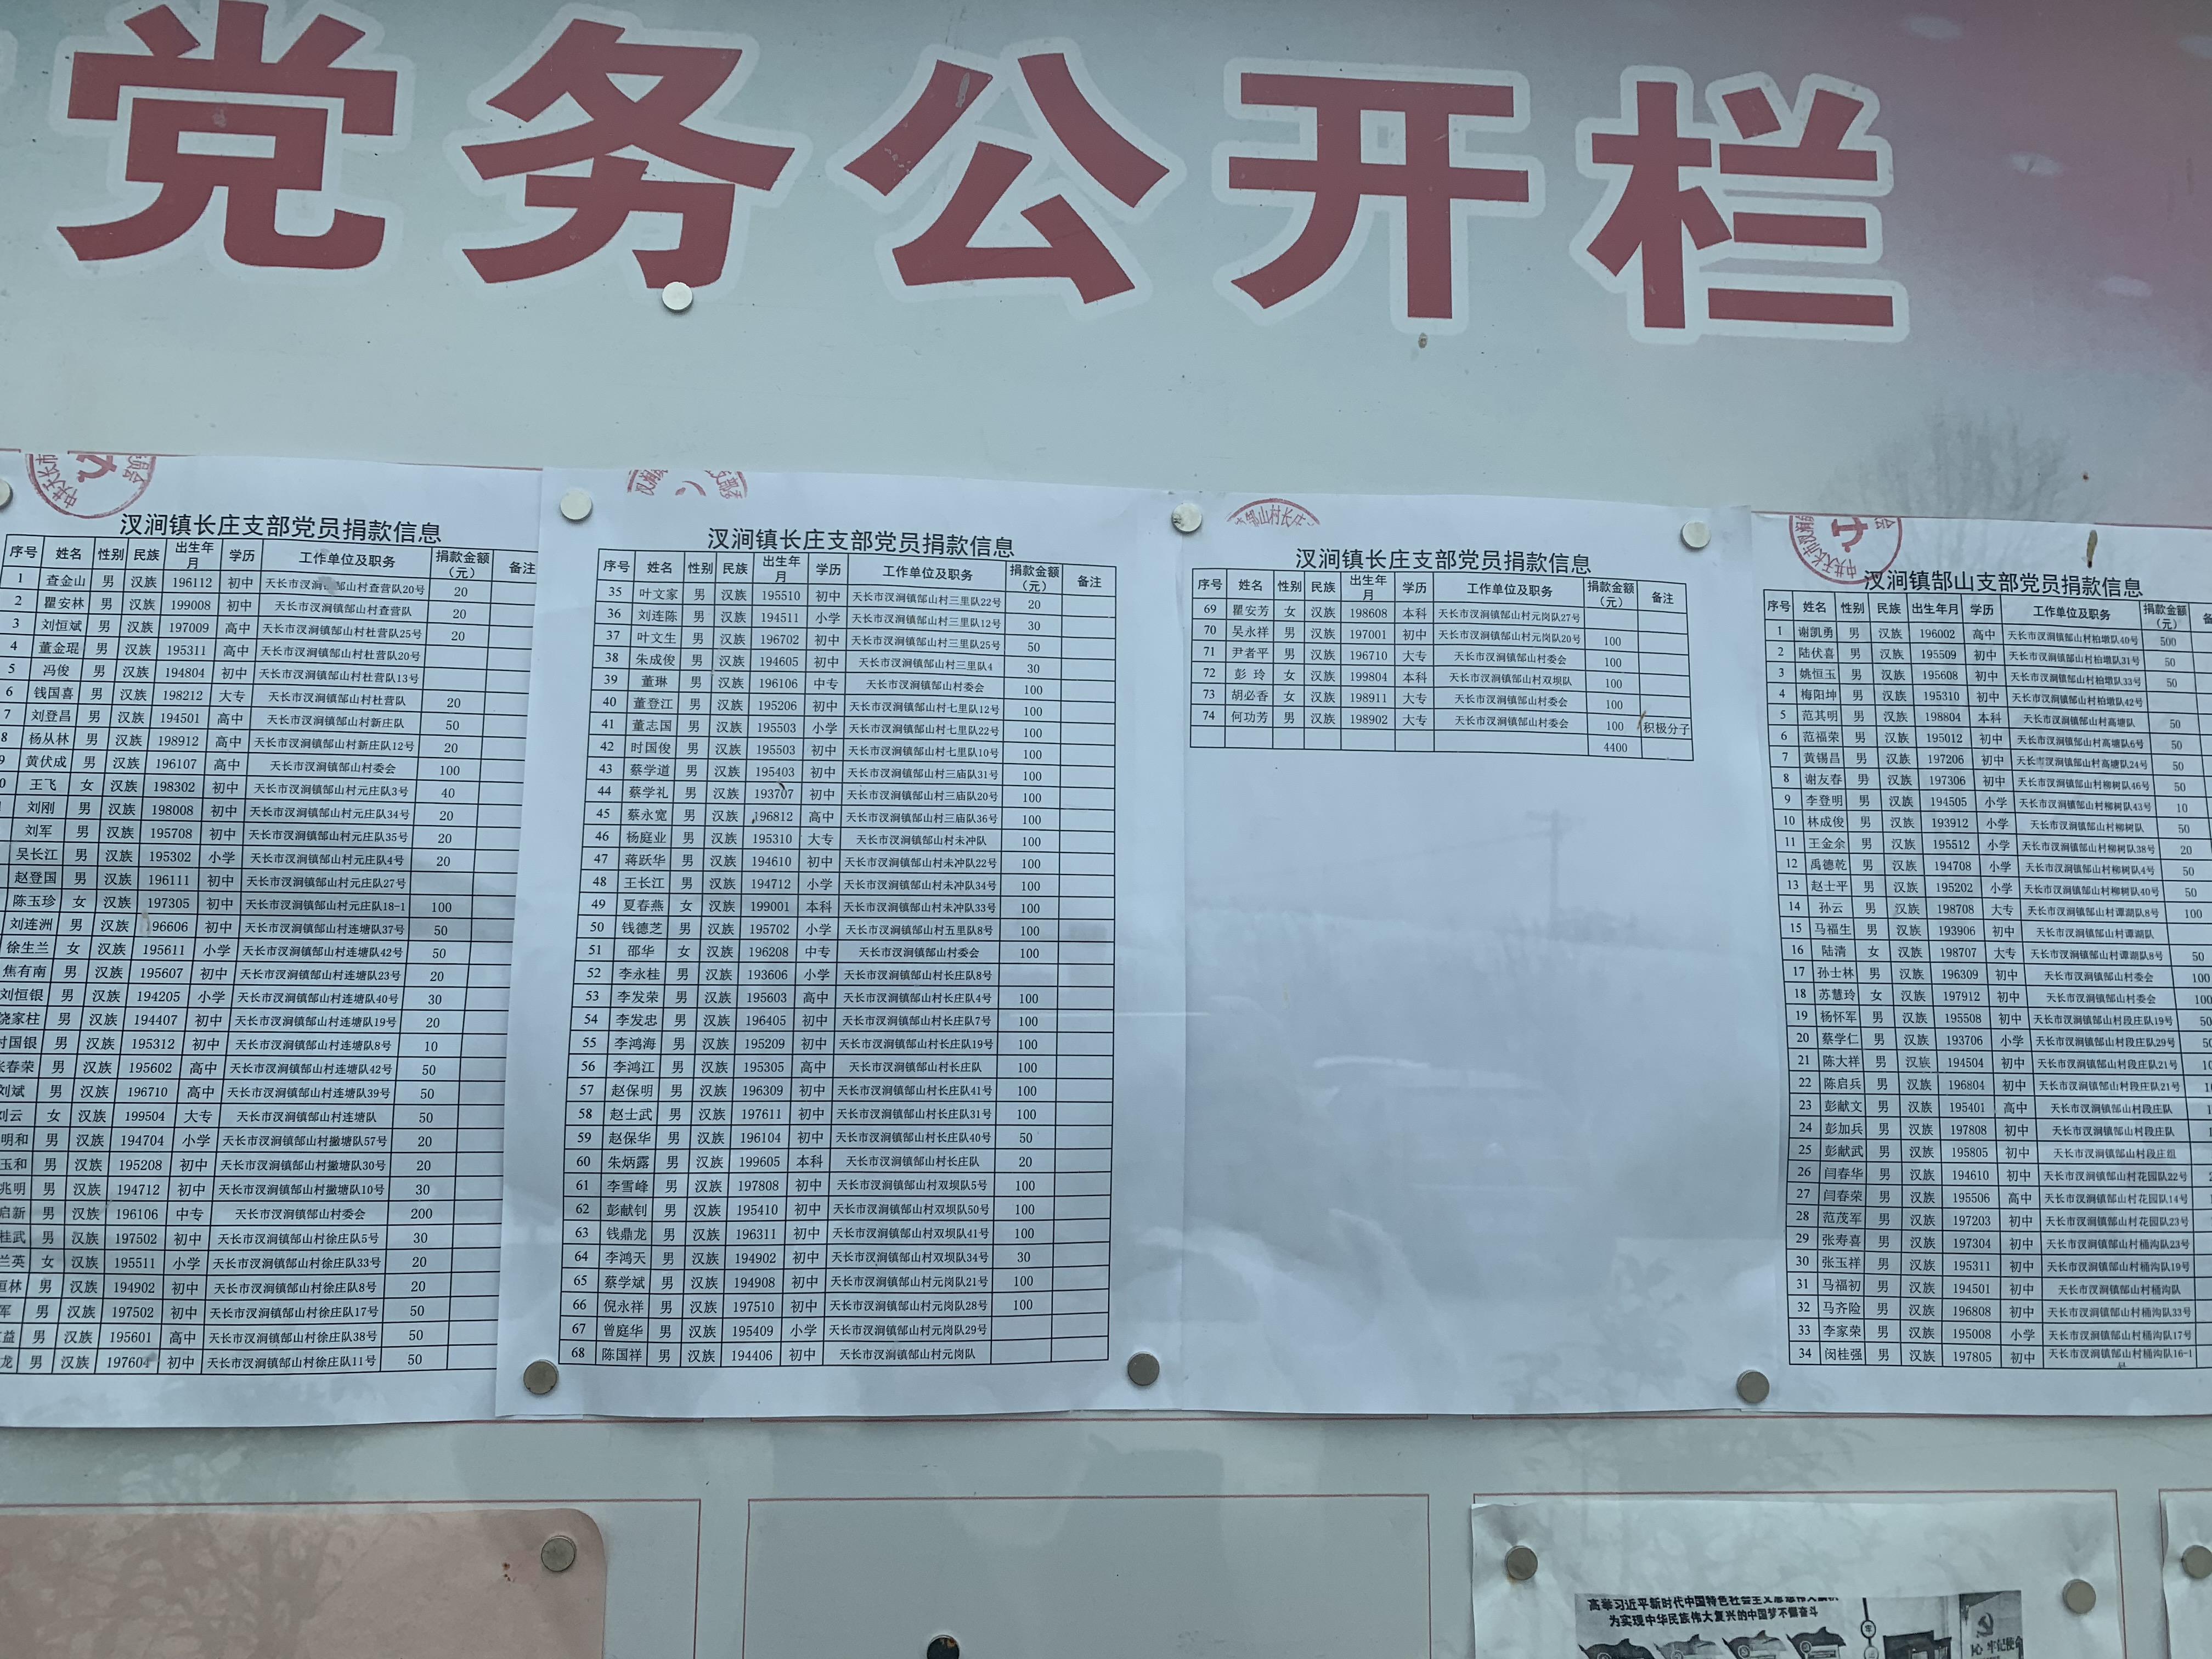 党务公开栏
汊涧镇长庄支部党员捐款信息
序号 姓名 性别 民族 出生年月 学历 工作单位及职务 捐款金额（元） 备注
1 查金山 男 汉族 196112 初中 天长市汊涧镇郜山村查营队20号 20
2 瞿安林 男 汉族 199008 初中 天长市汊涧镇郜山村查营队 20
3 刘恒斌 男 汉族 197009 高中 天长市汊涧镇郜山村杜营队25号 20
4 董金琨 男 汉族 195311 高中 天长市汊涧镇郜山村杜营队20号
5 冯俊 男 汉族 194804 初中 天长市汊涧镇郜山村杜营队13号
6 钱国喜 男 汉族 198212 大专 天长市汊涧镇郜山村杜营队 20
7 刘登昌 男 汉族 194501 高中 天长市汊涧镇郜山村新庄队 50
8 杨从林 男 汉族 198912 高中 天长市汊涧镇郜山村新庄队12号 20
9 黄伏成 男 汉族 196107 高中 天长市汊涧镇郜山村委会 100
0 王飞 女 汉族 198302 初中 天长市汊涧镇郜山村元庄队3号 40
刘刚 男 汉族 198008 初中 天长市汊涧镇郜山村元庄队34号 20
刘军 男 汉族 195708 初中 天长市汊涧镇郜山村元庄队35号 20
吴长江 男 汉族 195302 小学 天长市汊涧镇郜山村元庄队4号 20
赵登国 男 汉族 196111 初中 天长市汊涧镇郜山村元庄队27号
陈玉珍 女 汉族 197305 初中 天长市汊涧镇郜山村元庄队18-1 100
刘连洲 男 汉族 196606 初中 天长市汊涧镇郜山村连塘队37号 50
徐生兰 女 汉族 195611 小学 天长市汊涧镇郜山村连塘队42号 50
焦有南 男 汉族 195607 初中 天长市汊涧镇郜山村连塘队23号 20
刘恒银 男 汉族 194205 小学 天长市汊涧镇郜山村连塘队40号 30
饶家柱 男 汉族 194407 初中 天长市汊涧镇郜山村连塘队19号 20
国银 男 汉族 195312 初中 天长市汊涧镇郜山村连塘队8号 10
春荣 男 汉族 195602 高中 天长市汊涧镇郜山村连塘队42号 50
刘斌 男 汉族 196710 高中 天长市汊涧镇郜山村连塘队39号 50
刘云 女 汉族 199504 大专 天长市汊涧镇郜山村连塘队 50
明和 男 汉族 194704 小学 天长市汊涧镇郜山村撇塘队57号 20
玉和 男 汉族 195208 初中 天长市汊涧镇郜山村撇塘队30号 20
兆明 男 汉族 194712 初中 天长市汊涧镇郜山村撇塘队10号 30
启新 男 汉族 196106 中专 天长市汊涧镇郜山村委会 200
桂武 男 汉族 197502 初中 天长市汊涧镇郜山村徐庄队5号 30
兰英 女 汉族 195511 小学 天长市汊涧镇郜山村徐庄队33号 20
恒林 男 汉族 194902 初中 天长市汊涧镇郜山村徐庄队8号 20
军 男 汉族 197502 初中 天长市汊涧镇郜山村徐庄队17号 50
益 男 汉族 195601 高中 天长市汊涧镇郜山村徐庄队38号 50
龙 男 汉族 197604 初中 天长市汊涧镇郜山村徐庄队11号 50
汊涧镇长庄支部党员捐款信息
序号 姓名 性别 民族 出生年月 学历 工作单位及职务 捐款金额（元） 备注
35 叶文家 男 汉族 195510 初中 天长市汊涧镇郜山村三里队22号 20
36 刘连陈 男 汉族 194511 小学 天长市汊涧镇郜山村三里队12号 30
37 叶文生 男 汉族 196702 初中 天长市汊涧镇郜山村三里队25号 50
38 朱成俊 男 汉族 194605 初中 天长市汊涧镇郜山村三里队4 30
39 董琳 男 汉族 196106 中专 天长市汊涧镇郜山村委会 100
40 董登江 男 汉族 195206 初中 天长市汊涧镇郜山村七里队12号 100
41 董志国 男 汉族 195503 小学 天长市汊涧镇郜山村七里队22号 100
42 时国俊 男 汉族 195503 初中 天长市汊涧镇郜山村七里队10号 100
43 蔡学道 男 汉族 195403 初中 天长市汊涧镇郜山村三庙队31号 100
44 蔡学礼 男 汉族 193707 初中 天长市汊涧镇郜山村三庙队20号 100
45 蔡永宽 男 汉族 196812 高中 天长市汊涧镇郜山村三庙队36号 100
46 杨庭业 男 汉族 195310 大专 天长市汊涧镇郜山村未冲队 100
47 蒋跃华 男 汉族 194610 初中 天长市汊涧镇郜山村未冲队22号 100
48 王长江 男 汉族 194712 小学 天长市汊涧镇郜山村未冲队34号 100
49 夏春燕 女 汉族 199001 本科 天长市汊涧镇郜山村未冲队33号 100
50 钱德芝 男 汉族 195702 小学 天长市汊涧镇郜山村五里队8号 100
51 邵华 女 汉族 196208 中专 天长市汊涧镇郜山村委会 100
52 李永桂 男 汉族 193606 小学 天长市汊涧镇郜山村长庄队8号
53 李发荣 男 汉族 195603 高中 天长市汊涧镇郜山村长庄队4号 100
54 李发忠 男 汉族 196405 初中 天长市汊涧镇郜山村长庄队7号 100
55 李鸿海 男 汉族 195209 初中 天长市汊涧镇郜山村长庄队19号 100
56 李鸿江 男 汉族 195305 高中 天长市汊涧镇郜山村长庄队 100
57 赵保明 男 汉族 196309 初中 天长市汊涧镇郜山村长庄队41号 100
58 赵士武 男 汉族 197611 初中 天长市汊涧镇郜山村长庄队31号 100
59 赵保华 男 汉族 196104 初中 天长市汊涧镇郜山村长庄队40号 50
60 朱炳露 男 汉族 199605 本科 天长市汊涧镇郜山村长庄队 20
61 李雪峰 男 汉族 197808 初中 天长市汊涧镇郜山村双坝队5号 100
62 彭献钊 男 汉族 195410 初中 天长市汊涧镇郜山村双坝队50号 100
63 钱鼎龙 男 汉族 196311 初中 天长市汊涧镇郜山村双坝队41号 100
64 李鸿天 男 汉族 194902 初中 天长市汊涧镇郜山村双坝队34号 30
65 蔡学斌 男 汉族 194908 初中 天长市汊涧镇郜山村元岗队21号 100
66 倪永祥 男 汉族 197510 初中 天长市汊涧镇郜山村元岗队28号 100
67 曾庭华 男 汉族 195409 小学 天长市汊涧镇郜山村元岗队29号
68 陈国祥 男 汉族 194406 初中 天长市汊涧镇郜山村元岗队
汊涧镇长庄支部党员捐款信息
序号 姓名 性别 民族 出生年月 学历 工作单位及职务 捐款金额（元） 备注
69 瞿安芳 女 汉族 198608 本科 天长市汊涧镇郜山村元岗队27号
70 吴永祥 男 汉族 197001 初中 天长市汊涧镇郜山村元岗队20号 100
71 尹者平 男 汉族 196710 大专 天长市汊涧镇郜山村委会 100
72 彭玲 女 汉族 199804 本科 天长市汊涧镇郜山村双坝队 100
73 胡必香 女 汉族 198911 大专 天长市汊涧镇郜山村委会 100
74 何功芳 男 汉族 198902 大专 天长市汊涧镇郜山村委会 100 积极分子
4400
汊涧镇郜山支部党员捐款信息
序号 姓名 性别 民族 出生年月 学历 工作单位及职务 捐款金额（元）
1 谢凯勇 男 汉族 196002 高中 天长市汊涧镇郜山村柏墩队40号 500
2 陆伏喜 男 汉族 195509 初中 天长市汊涧镇郜山村柏墩队31号 50
3 姚恒玉 男 汉族 195608 初中 天长市汊涧镇郜山村柏墩队33号 50
4 梅阳坤 男 汉族 195310 初中 天长市汊涧镇郜山村柏墩队42号
5 范其明 男 汉族 198804 本科 天长市汊涧镇郜山村高塘队 50
6 范福荣 男 汉族 195012 初中 天长市汊涧镇郜山村高塘队6号 50
7 黄锡昌 男 汉族 197206 初中 天长市汊涧镇郜山村高塘队24号 50
8 谢友春 男 汉族 197306 初中 天长市汊涧镇郜山村柳树队46号 50
9 李登明 男 汉族 194505 小学 天长市汊涧镇郜山村柳树队43号 10
10 林成俊 男 汉族 193912 小学 天长市汊涧镇郜山村柳树队 50
11 王金余 男 汉族 195512 小学 天长市汊涧镇郜山村柳树队38号 20
12 禹德乾 男 汉族 194708 小学 天长市汊涧镇郜山村柳树队4号 50
13 赵士平 男 汉族 195202 小学 天长市汊涧镇郜山村柳树队40号 50
14 孙云 男 汉族 198708 大专 天长市汊涧镇郜山村谭湖队8号 100
15 马福生 男 汉族 193906 初中 天长市汊涧镇郜山村谭湖队
16 陆清 女 汉族 198707 大专 天长市汊涧镇郜山村谭湖队8号 50
17 孙士林 男 汉族 196309 初中 天长市汊涧镇郜山村委会 100
18 苏慧玲 女 汉族 197912 初中 天长市汊涧镇郜山村委会 100
19 杨怀军 男 汉族 195508 初中 天长市汊涧镇郜山村段庄队19号 50
20 蔡学仁 男 汉族 193706 小学 天长市汊涧镇郜山村段庄队29号
21 陈大祥 男 汉族 194504 初中 天长市汊涧镇郜山村段庄队21号
22 陈启兵 男 汉族 196804 初中 天长市汊涧镇郜山村段庄队21号
23 彭献文 男 汉族 195401 高中 天长市汊涧镇郜山村段庄队
24 彭加兵 男 汉族 197808 初中 天长市汊涧镇郜山村段庄队
25 彭献武 男 汉族 195805 初中 天长市汊涧镇郜山村段庄组
26 闫春华 男 汉族 194610 初中 天长市汊涧镇郜山村花园队22号
27 闫春荣 男 汉族 195506 高中 天长市汊涧镇郜山村花园队14号
28 范茂军 男 汉族 197203 初中 天长市汊涧镇郜山村花园队23号
29 张寿喜 男 汉族 197304 初中 天长市汊涧镇郜山村桶沟队23号
30 张玉祥 男 汉族 195311 初中 天长市汊涧镇郜山村桶沟队19号
31 马福初 男 汉族 194501 初中 天长市汊涧镇郜山村桶沟队
32 马齐险 男 汉族 196808 初中 天长市汊涧镇郜山村桶沟队33号
33 李家荣 男 汉族 195008 小学 天长市汊涧镇郜山村桶沟队17号
34 闵桂强 男 汉族 197805 初中 天长市汊涧镇郜山村桶沟队16-1
高举习近平新时代中国特色社会主义思想伟大旗帜
为实现中华民族伟大复兴的中国梦不懈奋斗
牢记使命